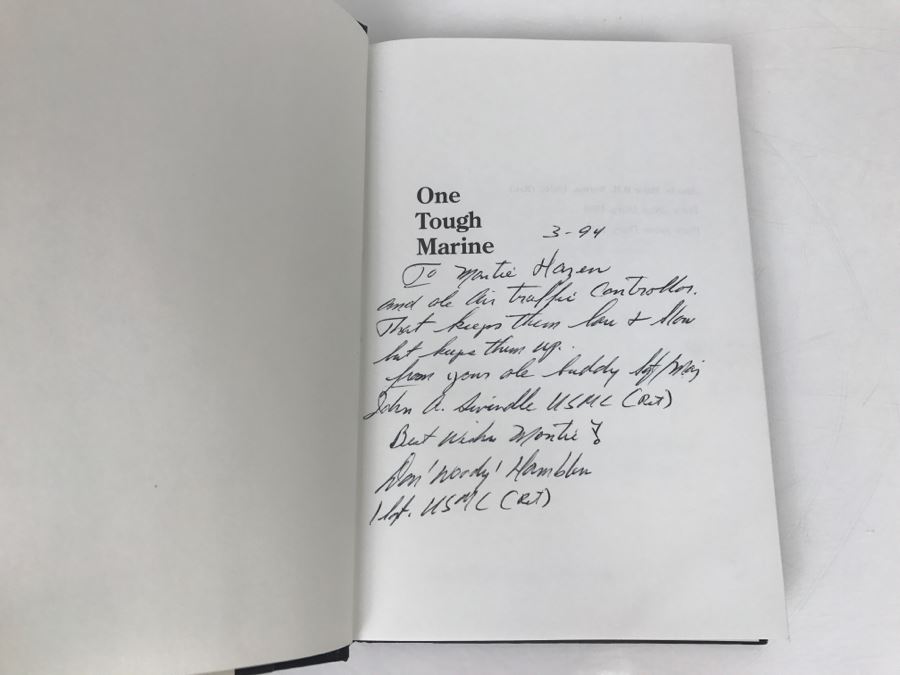 One
Tough
Marine
3-94
To Montie Hazen
and ole Air traffic Controller.
That keeps them low & slow
but keeps them up.
from your ole buddy Sgt/Maj
John A. Swindle USMC (Ret)
Best Wishes Montie!
Don 'Woody' Hamblen
1 Sgt. USMC (Ret)